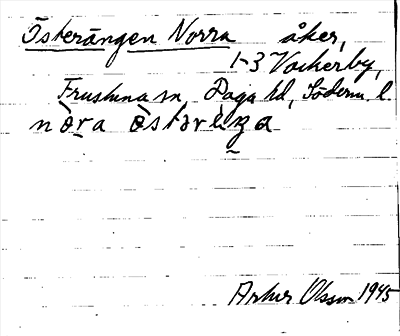 Österängen Norra åker,
1-3 Vackerby,
Frustuna sn, Daga hd, Söderm. l.
nòra östərẹŋa
Artur Olsson 1945